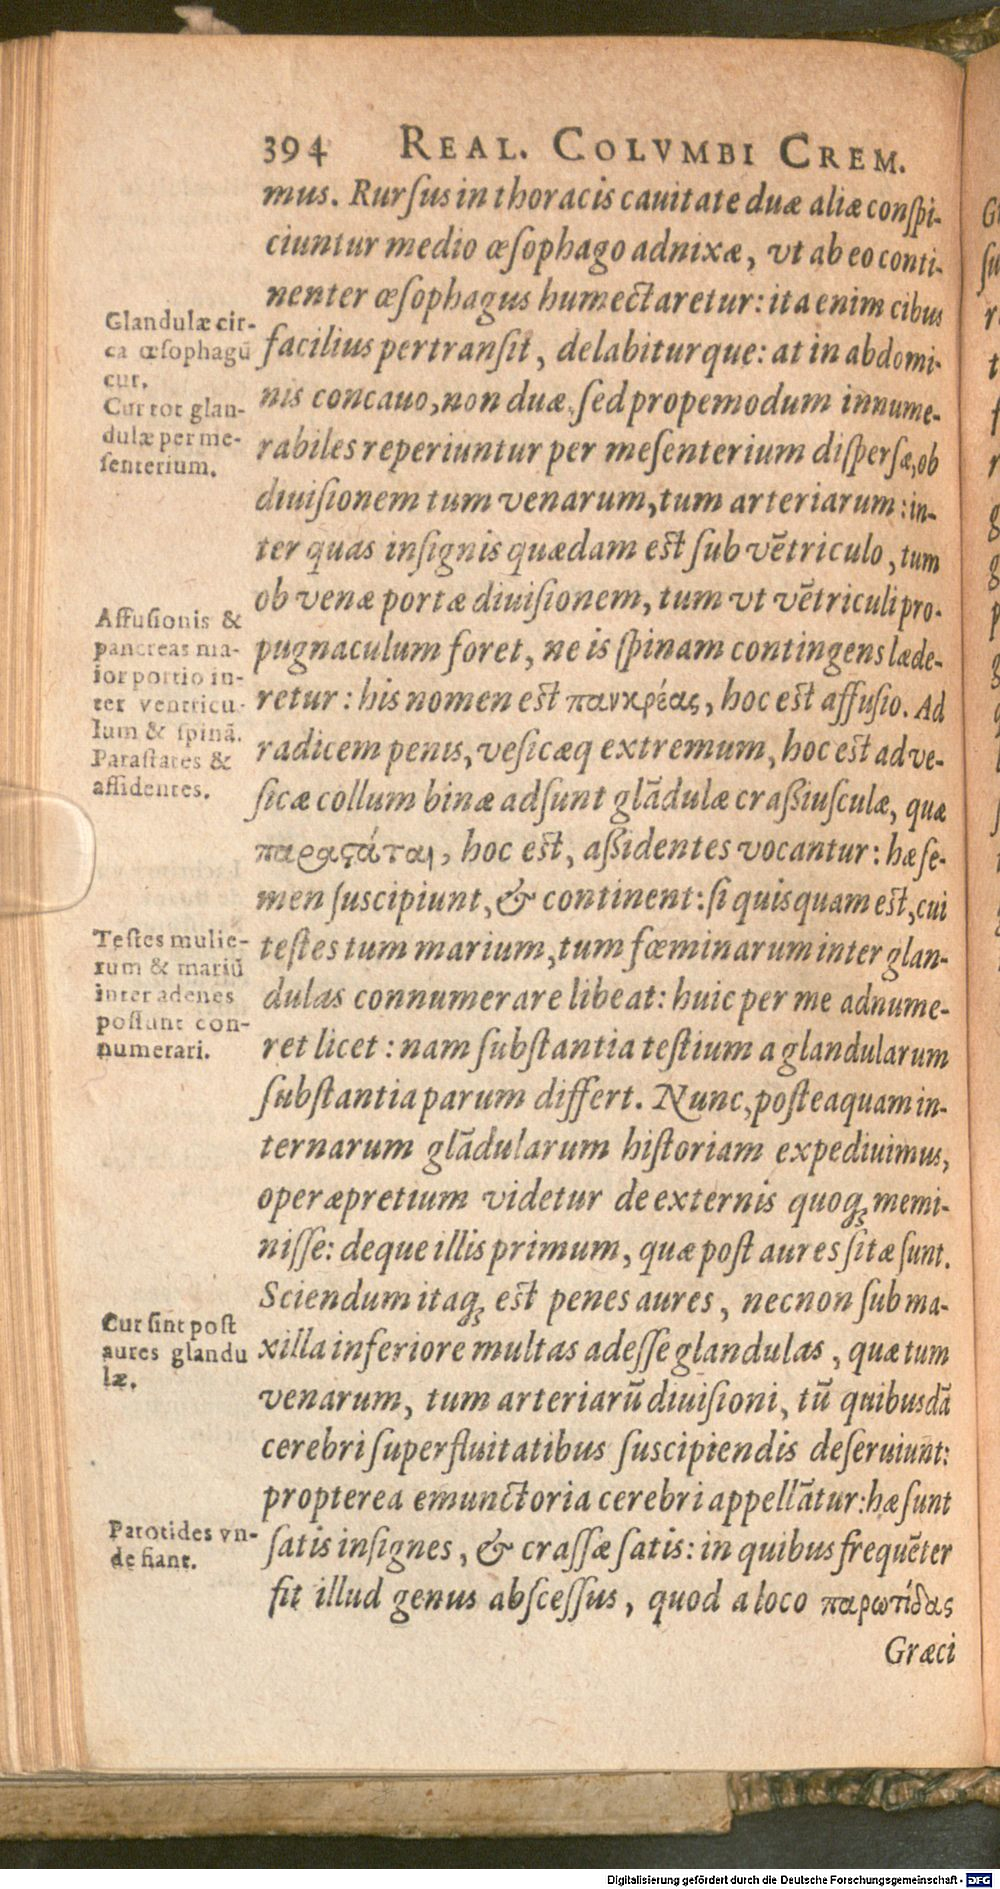 394 REAL. COLVMBI CREM.
mus. Rursus in thoracis cauitate duæ aliæ conspi-
ciuntur medio œsophago adnixæ, vt ab eo conti-
nenter œsophagus humectaretur: ita enim cibus
facilius pertransit, delabiturque: at in abdomi-
nis concauo, non duæ, sed propemodum innume-
rabiles reperiuntur per mesenterium dispersæ, ob
diuisionem tum venarum, tum arteriarum: in-
ter quas insignis quædam est sub vētriculo, tum
ob venæ portæ diuisionem, tum vt vētriculi pro-
pugnaculum foret, ne is spinam contingens læde-
retur: his nomen est πανκρέας, hoc est affusio. Ad
radicem penis, vesicæq extremum, hoc est ad ve-
sicæ collum binæ adsunt glādulæ crassiusculæ, quæ
παραςάται, hoc est, assidentes vocantur: hæ se-
men suscipiunt, & continent: si quisquam est, cui
testes tum marium, tum fœminarum inter glan-
dulas connumerare libeat: huic per me adnume-
ret licet: nam substantia testium a glandularum
substantia parum differt. Nunc, posteaquam in-
ternarum glādularum historiam expediuimus,
operæpretium videtur de externis quoq; memi-
nisse: deque illis primum, quæ post aures sitæ sunt.
Sciendum itaq; est penes aures, necnon sub ma-
xilla inferiore multas adesse glandulas, quæ tum
venarum, tum arteriarū diuisioni, tū quibusdā
cerebri superfluitatibus suscipiendis deseruiunt:
propterea emunctoria cerebri appellātur: hæ sunt
satis insignes, & crassæ satis: in quibus frequēter
fit illud genus abscessus, quod a loco παρωτίδας
Græci
Glandulæ cir-
ca œsophagū
cur.
Cur tot glan-
dulæ per me-
senterium.
Affusionis &
pancreas ma-
ior portio in-
ter ventricu-
lum & spinā.
Parastates &
assidentes.
Testes mulie-
rum & mariū
inter adenes
possunt con-
numerari.
Cur sint post
aures glandu
læ.
Parotides vn-
de fiant.
Digitalisierung gefördert durch die Deutsche Forschungsgemeinschaft - DFG